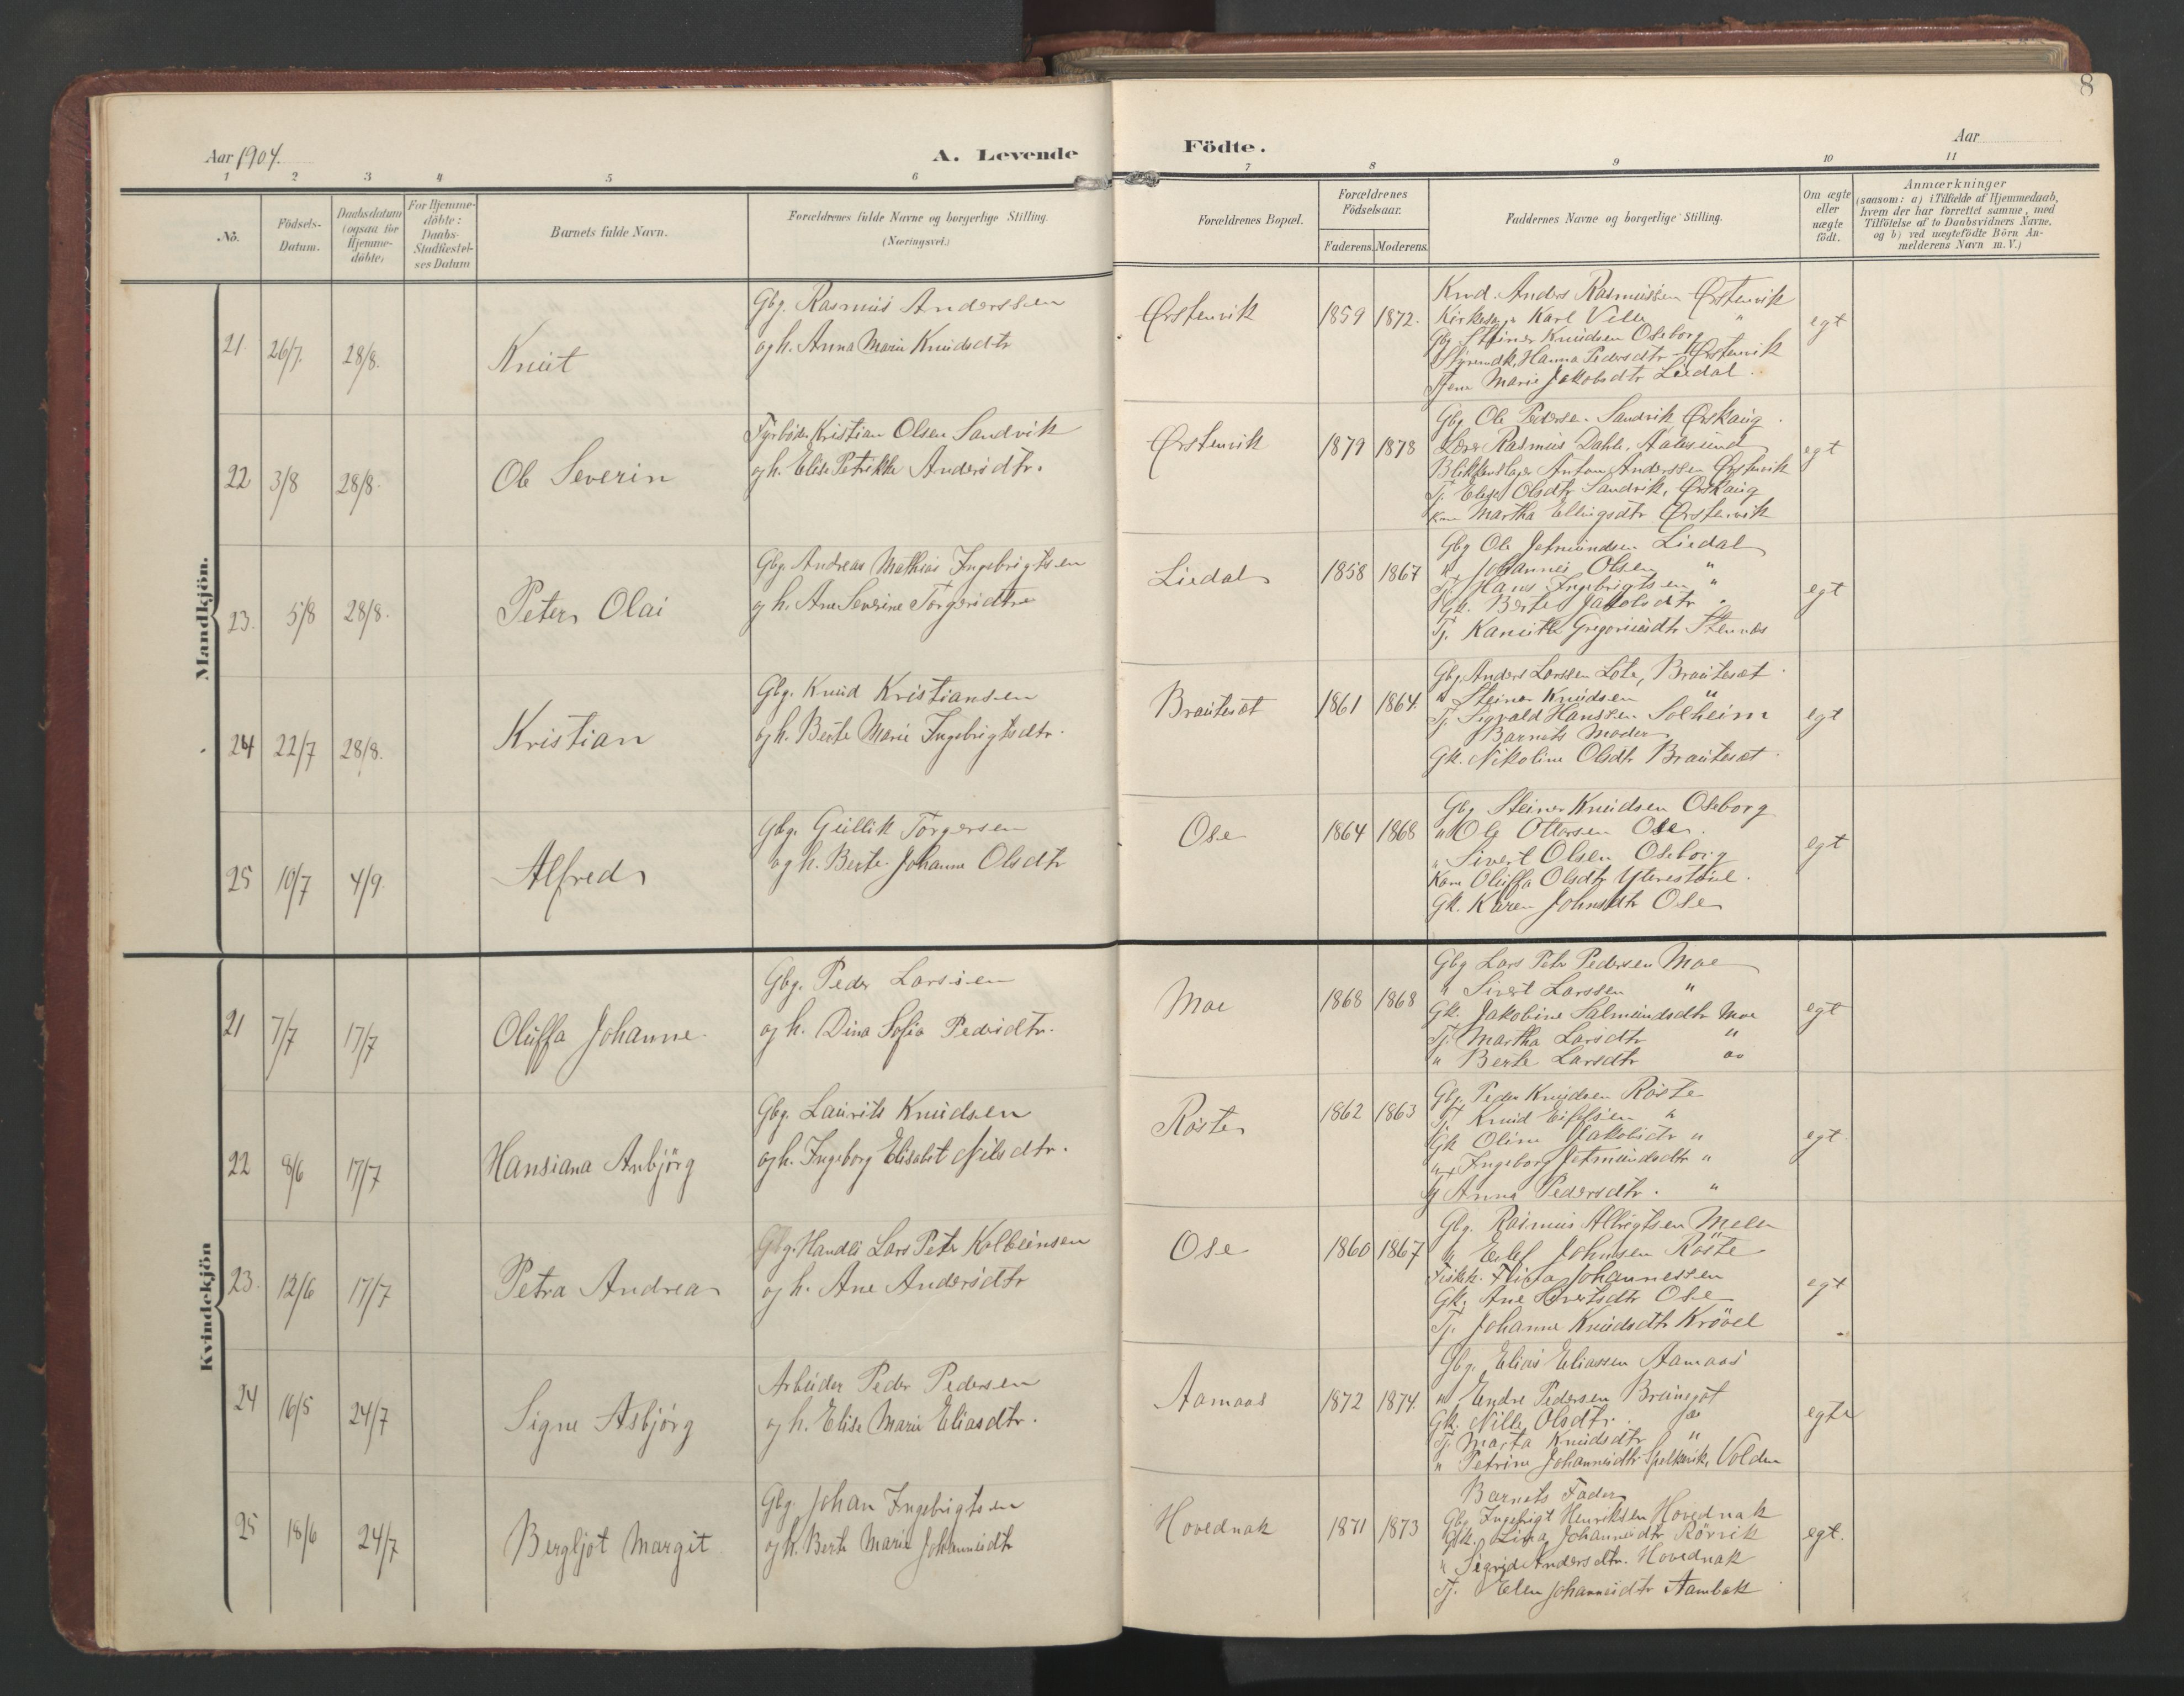 8
Aar 1904. A. Levende Födte. Aar
1 2 3 4 5 6 7 8 9 10 11
No. Födsels-Datum. Daabsdatum (ogsaa for Hjemme-döbte) For Hjemme-döbte: Daabs-Stadfæstel-ses Datum Barnets fulde Navn. Forældrenes fulde Navne og borgerlige Stilling. (Næringsvei.) Forældrenes Bopæl. Forældrenes Födselsaar. Faderens. Moderens. Faddernes Navne og borgerlige Stilling. Om ægte eller uægte födt. Anmærkninger (saasom: a) i Tilfælde af Hjemmedaab, hvem der har forrettet samme, med Tilföielse af to Daabsvidners Navne, og b) ved uægtefödte Börn An-melderens Navn m.V.)
Mandkjön.
21. 26/7. 28/8. Knut
Gbg. Rasmus Anderssen
og h. Anna Marie Knudsdtr
Ørstenvik 1859 1872. egt
Anders Rasmussen Ørstenvik
Karl Velle "
Gbg. Steiner Knudsen Oseborg
Hanna Pedersdtr Ørstenvik
Marie Jakobsdtr Liedal.
22 3/8 28/8. Ole Severin
Fyrböder Kristian Olsen Sandvik
og h. Elise Petrikke Andersdtr.
Ørstenvik 1879 1878 egt
Gbg. Ole Pedersen Sandvik Ørskaug.
Lærer Rasmus Dahle, Aalesund
Blikkenslager Anton Anderssen Ørstenvik
Tj. Elise Olsdtr Sandvik, Ørskaug
Kone Martha Ellingsdtr Ørstenvik
23. 5/8 28/8. Peter Olai
Gbg. Andreas Mathias Ingebrigtsen
og h. Ane Severine Torgersdtr
Liedal 1858 1867 egt
Gbg Ole Jetmundsen Liedal
" Johannes Olsen "
Tj. Hans Ingebrigtsen "
Gk. Berte Jakobsdtr "
Tj. Kanutte Gregoriusdtr Stennes
24 22/7 28/8. Kristian
Gbg. Knud Kristiansen
og h. Berte Marie Ingebrigtsdtr.
Brautesæt 1861 1864. egt
Gbg. Anders Larssen Lote, Brautesæt.
" Steiner Knudsen "
Tj. Sigvald Hanssen Solheim
Barnets Moder
Gk. Nikoline Olsdtr Brautesæt.
25 10/7 4/9. Alfred
Gbg. Gullik Torgersen
og h. Berte Johanne Olsdtr
Ose 1864 1868 egt
Gbg Steiner Knudsen Oseborg
" Ole Ottersen Ose.
" Sivert Olsen Oseborg
Kone Oluffa Olsdtr Yterestöl.
Gk. Karen Johnsdtr Ose
Kvindekjön
21 7/7 17/7 Oluffa Johanne.
Gbg. Peder Larssen
og h. Dina Sofia Pedersdtr.
Moe 1868 1868 egt
Gbg Lars Petr Pedersen Moe
" Sivert Larssen "
Gk. Jakobine Salmundsdtr Moe
Tj. Martha Larsdtr "
" Berte Larsdtr "
22 8/6 17/7 Hansiana Anbjörg
Gbg. Laurits Knudsen
og h. Ingeborg Elisabet Nilsdtr.
Röste 1862 1863 egt
Gbg. Peder Knudsen Röste
Tj. Knud "
Gk Oline Jakobsdtr "
" Ingeborg Jetmundsdtr "
Tj Anna Pedersdtr. "
23. 12/6 17/7 Petra Andrea
Gbg. Handl. Lars Petr Kolbeinsen
og h. Ane Andersdtr
Ose 1860 1867 egt
Gbg. Rasmus Albrigtsen Melle
" Elef Johnsen Röste
Johannessen
Gk. Ane Sivertsdtr Ose
Tj. Johanne Knudsdtr Krövel
24 16/5 24/7 Signe Asbjörg
Arbeider Peder Pedersen
og h. Elise Marie Eliasdtr.
Aamaas 1872 1874. egte
Gbg. Elias Eliassen Aamaas
" Endre Pedersen
Gk. Nille Olsdtr. "
Tj. Marta Knudsdtr "
" Petrine Johannesdtr Spelkavik, Volden
25 18/6 24/7 Bergljot Margit
Gbg. Johan Ingebrigtsen
og h. Berte Marie Johannesdtr
Hovednak 1871 1873 egt.
Barnets Fader
Gbg. Ingebrigt Henriksen Hovednak
Gk. Lina Johannesdtr Rörvik
" Sigrid Andersdtr. Hovednak
Tj. Elen Johannesdtr Aambak